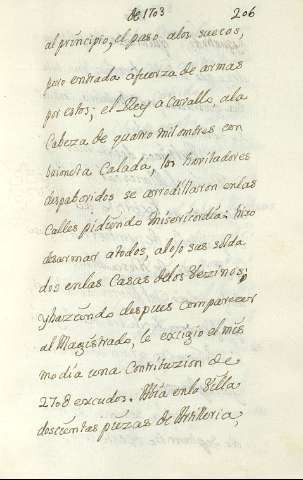 de 1703 206
al principio, el paso alos suecos,
pero entrada afuerza de armas
por estos; el Rey a Cavallo, ala
Cabeza de quatro mil ombres con
vaioneta Calada, los havitadores
despavoridos se arrodillaron enlas
Calles pidiendo misericordia: hizo
desarmar atodos, alojo sus solda
dos enlas Casas delos Vezinos;
y haziendo despues comparezer
al Magistrado, le exigio el mis
mo dia una Contribuzion de
2708 escudos. Avia enla Villa
doscientas piezas de Artilleria,